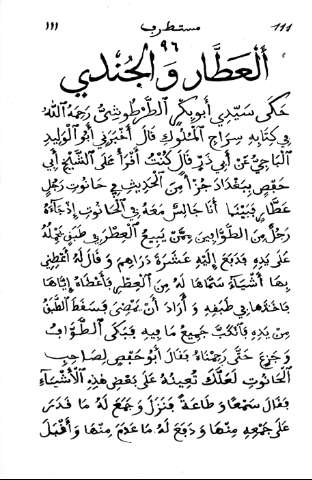 111 مستظرف ١١١
٩٦
ألعطَّار وَالجُندي
حَكَى سَيّدِي أَبُو بَكْرٍ الطَّرْطُوشِيُّ رَحِمَهُ اللهُ
فِي كِتَابِهِ سِرَاجِ المُلُوكِ قَالَ أَخْبَرَنِي أَبُو الوَلِيدِ
البَاجِيُّ عَنْ أَبِي ذَرٍّ قَالَ كُنْتُ أَقْرَأُ عَلَى الشَّيْخِ أَبِي
حَفْصٍ بِبَغْدَادَ جُزْأً مِنَ الحَدِيثِ فِي حَانُوتِ رَجُلٍ
عَطَّارٍ فَبَيْنَمَا أَنَا جَالِسٌ مَعَهُ فِي الحَانُوتِ إِذْ جَاءَهُ
رَجُلٌ مِنَ الطَّوَّافِينَ مِمَّنْ يَبِيعُ العِطْرَ فِي طَبَقٍ يَحْمِلُهُ
عَلَى يَدِهِ فَدَفَعَ إِلَيْهِ عَشْرَةَ دَرَاهِمَ وَقَالَ لَهُ أَعْطِنِي
بِهَا أَشْيَاءَ سَمَّاهَا لَهُ مِنَ العِطْرِ فَأَعْطَاهُ إِيَّاهَا
فَأَخَذَهَا فِي طَبَقِهِ وَأَرَادَ أَنْ يَمْضِيَ فَسَقَطَ الطَّبَقُ
مِنْ يَدِهِ فَانْكَبَّ جَمِيعُ مَا فِيهِ فَبَكَى الطَّوَّافُ
وَجَزِعَ حَتَّى رَحِمْنَاهُ فَقَالَ أَبُو حَفْصٍ لِصَاحِبِ
الحَانُوتِ لَعَلَّكَ تُعِينُهُ عَلَى بَعْضِ هَذِهِ الأَشْيَاءِ
فَقَالَ سَمْعًا وَطَاعَةً فَنَزَلَ وَجَمَعَ لَهُ مَا قَدَرَ
عَلَى جَمْعِهِ مِنْهَا وَدَفَعَ لَهُ مَا عَدِمَ مِنْهَا وَأَقْبَلَ